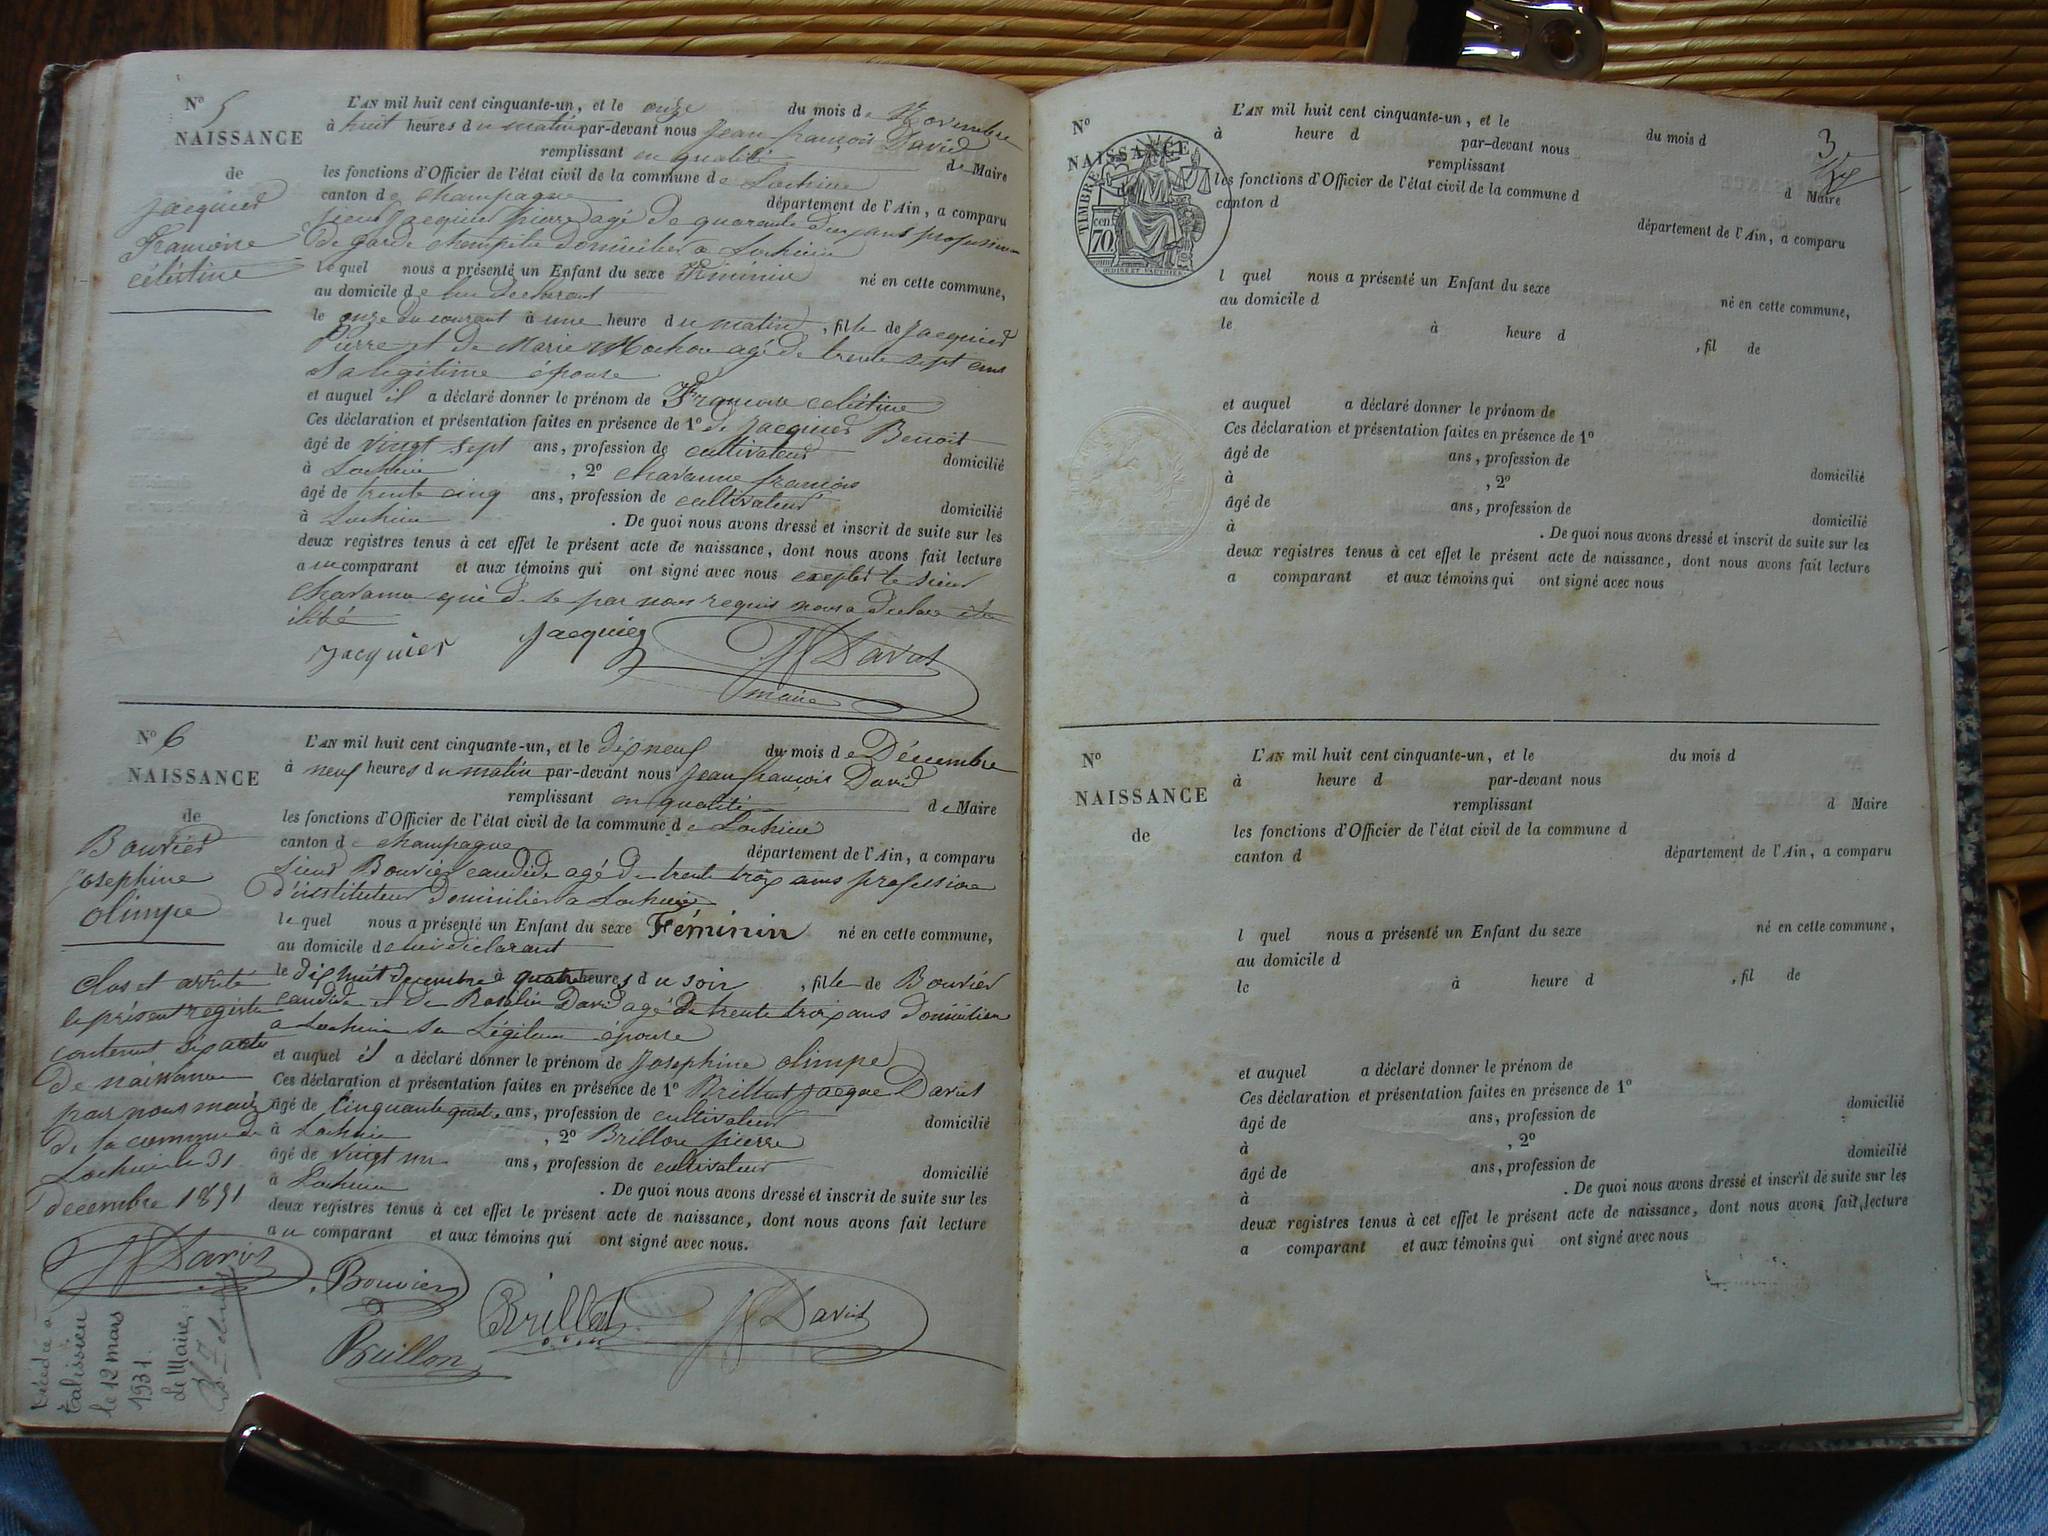 N° 5
NAISSANCE
de
Jacquier
Francoise
célestine
L'AN mil huit cent cinquante-un, et le onze du mois de Novembre
à huit heures du matin par-devant nous Jean françois David
remplissant en qualité de Maire
les fonctions d'Officier de l'état civil de la commune de Lochieu
canton de champagne département de l'Ain, a comparu
sieur Jacquier Pierre agé de quarante deux ans profession
de garde champetre domicilier a Lochieu
lequel nous a présenté un Enfant du sexe Féminin né en cette commune,
au domicile de lui declarant
le onze du courant à une heure du matin, fille de Jacquier
Pierre et de Marie Mochon agé de trente sept ans
Sa légitime épouse
et auquel il a déclaré donner le prénom de Francoise celéstine
Ces déclaration et présentation faites en présence de 1° de Jacquier Benoit
âgé de vingt sept ans, profession de cultivateur domicilié
à Lochieu, 2° charanne françois
âgé de trente cinq ans, profession de cultivateur domicilié
à Lochieu. De quoi nous avons dressé et inscrit de suite sur les
deux registres tenus à cet effet le présent acte de naissance, dont nous avons fait lecture
au comparant et aux témoins qui ont signé avec nous excepter le sieur
charanne qui de ce par nous requis nous a declaré
Jacquier Jacquier JF David
maire
N° 6
NAISSANCE
de
Bouvier
Josephine
olimpe
L'AN mil huit cent cinquante-un, et le dix neuf du mois de Décembre
à neuf heures du matin par-devant nous Jean françois David
remplissant en qualité de Maire
les fonctions d'Officier de l'état civil de la commune de Lochieu
canton de champagne département de l'Ain, a comparu
sieur Bouvier candide agé de trente trois ans profession
d'instituteur domicilier a Lochieu
lequel nous a présenté un Enfant du sexe Féminin né en cette commune,
au domicile de lui déclarant
le dix huit decembre à quatre heures du soir, fille de Bouvier
candide et de Rosalie David agé de trente trois ans domicilier
a Lochieu sa Légitime épouse
et auquel il a déclaré donner le prénom de Josephine olimpe
Ces déclaration et présentation faites en présence de 1° Brillat Jacque David
âgé de cinquante quatre ans, profession de cultivateur domicilié
à Lochieu, 2° Brillon pierre
âgé de vingt un ans, profession de cultivateur domicilié
à Lochieu. De quoi nous avons dressé et inscrit de suite sur les
deux registres tenus à cet effet le présent acte de naissance, dont nous avons fait lecture
au comparant et aux témoins qui ont signé avec nous.
Bouvier
Brillat JF David
Brillon
clos et arrêté
le présent registre
contenant six actes
de naissance
par nous maire
de la commune de
Lochieu le 31
decembre 1851
JF David
Décédée à
Talissieu
le 12 mars
1931.
Le Maire,
3
N°
NAISSANCE
TIMBRE
70 cen
L'AN mil huit cent cinquante-un, et le du mois d
à heure d par-devant nous
remplissant d Maire
les fonctions d'Officier de l'état civil de la commune d
canton d département de l'Ain, a comparu
l quel nous a présenté un Enfant du sexe né en cette commune,
au domicile d
le à heure d , fil de
et auquel a déclaré donner le prénom de
Ces déclaration et présentation faites en présence de 1°
âgé de ans, profession de domicilié
à , 2°
âgé de ans, profession de domicilié
à . De quoi nous avons dressé et inscrit de suite sur les
deux registres tenus à cet effet le présent acte de naissance, dont nous avons fait lecture
a comparant et aux témoins qui ont signé avec nous
N°
NAISSANCE
de
L'AN mil huit cent cinquante-un, et le du mois d
à heure d par-devant nous
remplissant d Maire
les fonctions d'Officier de l'état civil de la commune d
canton d département de l'Ain, a comparu
l quel nous a présenté un Enfant du sexe né en cette commune,
au domicile d
le à heure d , fil de
et auquel a déclaré donner le prénom de
Ces déclaration et présentation faites en présence de 1°
âgé de ans, profession de domicilié
à , 2°
âgé de ans, profession de domicilié
à . De quoi nous avons dressé et inscrit de suite sur les
deux registres tenus à cet effet le présent acte de naissance, dont nous avons fait lecture
a comparant et aux témoins qui ont signé avec nous